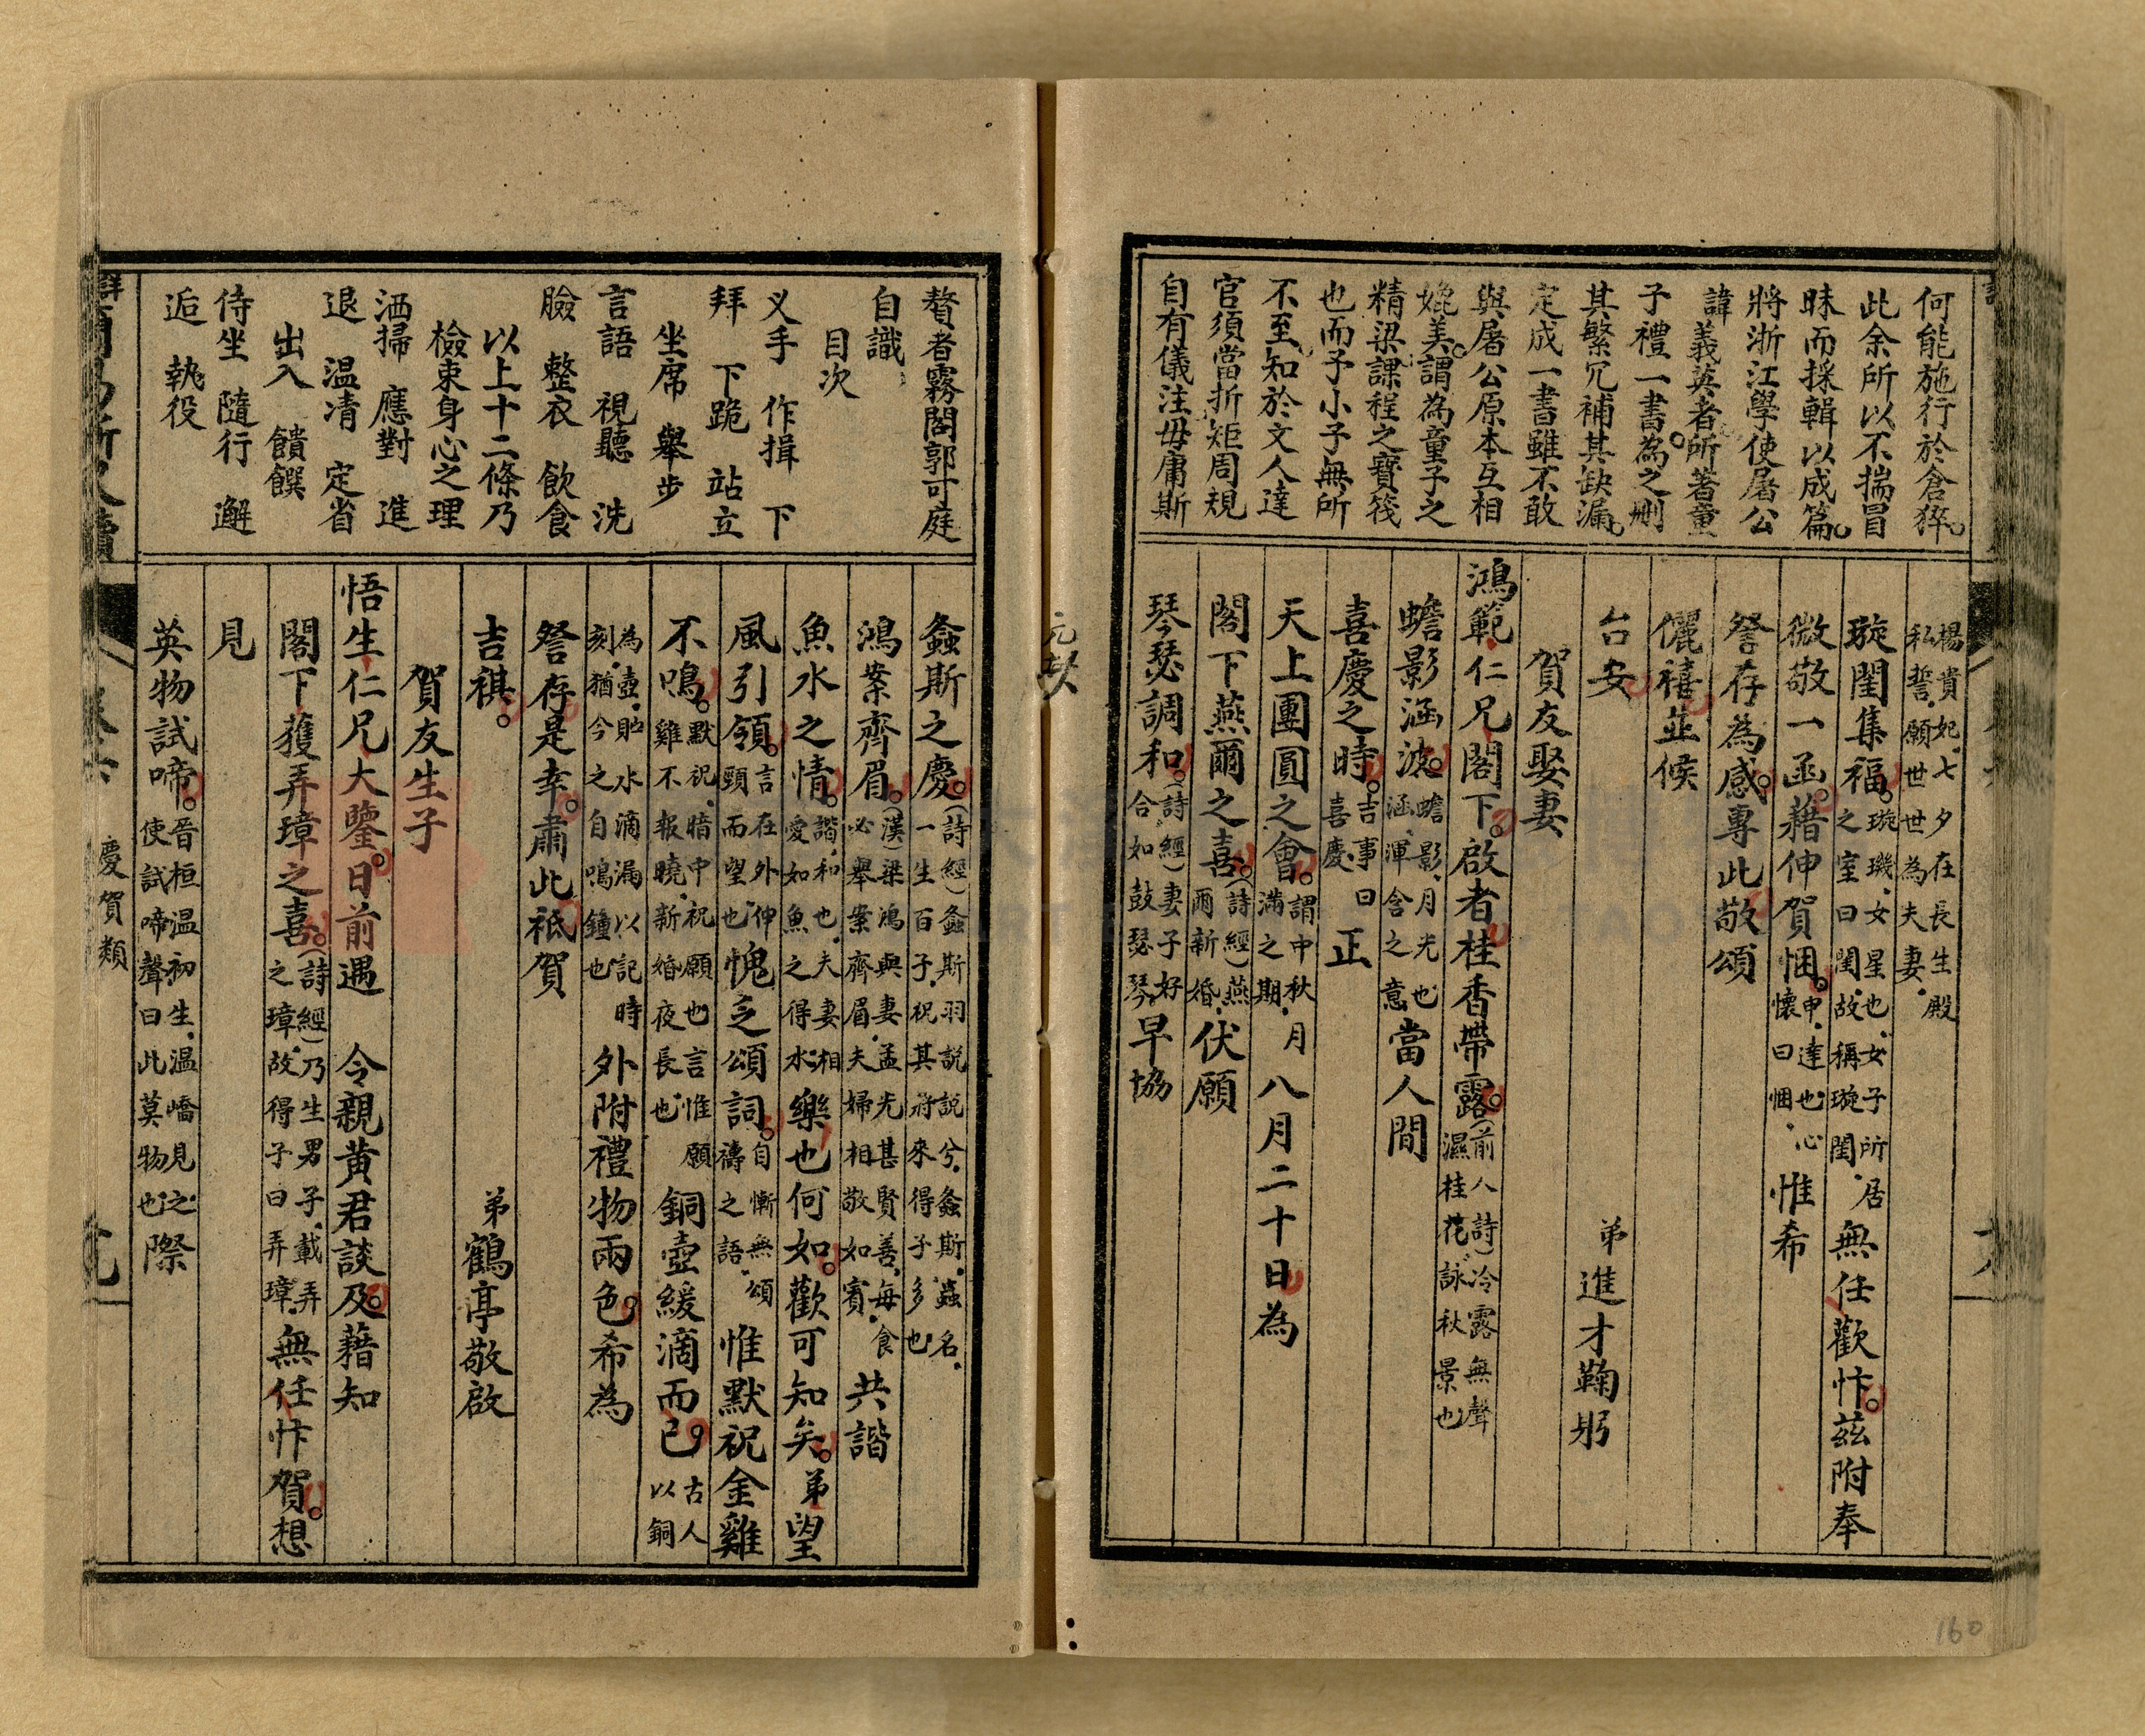 何能施行於倉猝。
此余所以不揣冒
昧而採輯以成篇。
將浙江學使屠公
諱義英者所著童
子禮一書。為之刪
其繁冗補其缺漏。
定成一書雖不敢
與屠公原本互相
媲美。謂為童子之
精梁課程之寶筏
也而予小子無所
不至知於文人達
官須當折矩周規
自有儀注毋庸斯
楊貴妃、七夕在長生殿
私誓、願世世為夫妻、
璇閨集福。璇璣、女星也、女子所居
之室曰閨、故稱璇閨、無任歡忭。茲附奉
微敬一函。藉伸賀悃。申、達也、心
懷曰悃、惟希
詧存為感。專此敬頌
儷禧並候
台安
弟進才鞠躬
賀友娶妻
鴻範仁兄閣下。啟者桂香帶露。(前人詩)冷露無聲
濕桂花、詠秋景也
蟾影涵波。蟾影、月光也
涵、渾含之意當人間
喜慶之時。吉事曰
喜慶、正
天上團圓之會。謂中秋月
滿之期、八月二十日為
閣下燕爾之喜。(詩經)燕
爾新婚、伏願
琴瑟調和。(詩經)妻子好
合如鼓瑟琴、早協
元契
160
贅者霧閣郭可庭
自識
目次
义手 作揖 下
拜 下跪 站立
坐席 舉步
言語 視聽 洗
臉 整衣 飲食
以上十二條乃
檢束身心之理
洒掃 應對 進
退 温凊 定省
出入 饋饌
侍坐 隨行 邂
逅 執役
螽斯之慶。(詩經)螽斯羽說說兮、螽斯、蟲名、
一生百子、祝其將來得子多也
鴻案齊眉。(漢)梁鴻與妻孟光甚賢善、每食
必舉案齊眉、夫婦相敬如賓、共諧
魚水之情。諧、和也、夫妻相
愛如魚之得水、樂也何如。歡可知矣。弟望
風引領。言在外伸
頸而望也、愧乏頌詞。自慚無頌
禱之語、惟默祝金雞
不鳴。默祝、暗中祝願也言惟願
雞不報曉、新婚夜長也銅壺緩滴而已。古人
以銅
為壺、貯水滴漏以記時
刻、猶今之自鳴鐘也外附禮物兩色。希為
詧存是幸。肅此祗賀
吉祺。
弟鶴亭敬啟
賀友生子
悟生仁兄大鑒。日前遇 令親黃君談及。藉知
閣下獲弄璋之喜。(詩經)乃生男子、載弄
之璋、故得子曰弄璋、無任忭賀。想
見
英物試啼。晉桓温初生、温嶠見之
使試啼聲曰此莫物也際
慶賀類